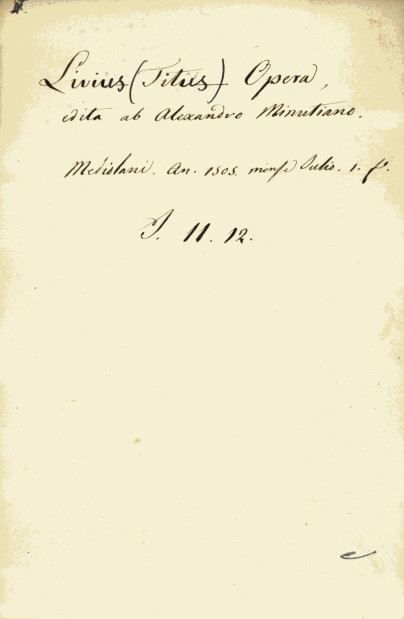 Livius (Titus) Opera,
edita ab Alexandro Minutiano.
Mediolani. An. 1505. mense Julio. 1. f.
J. 11. 12.